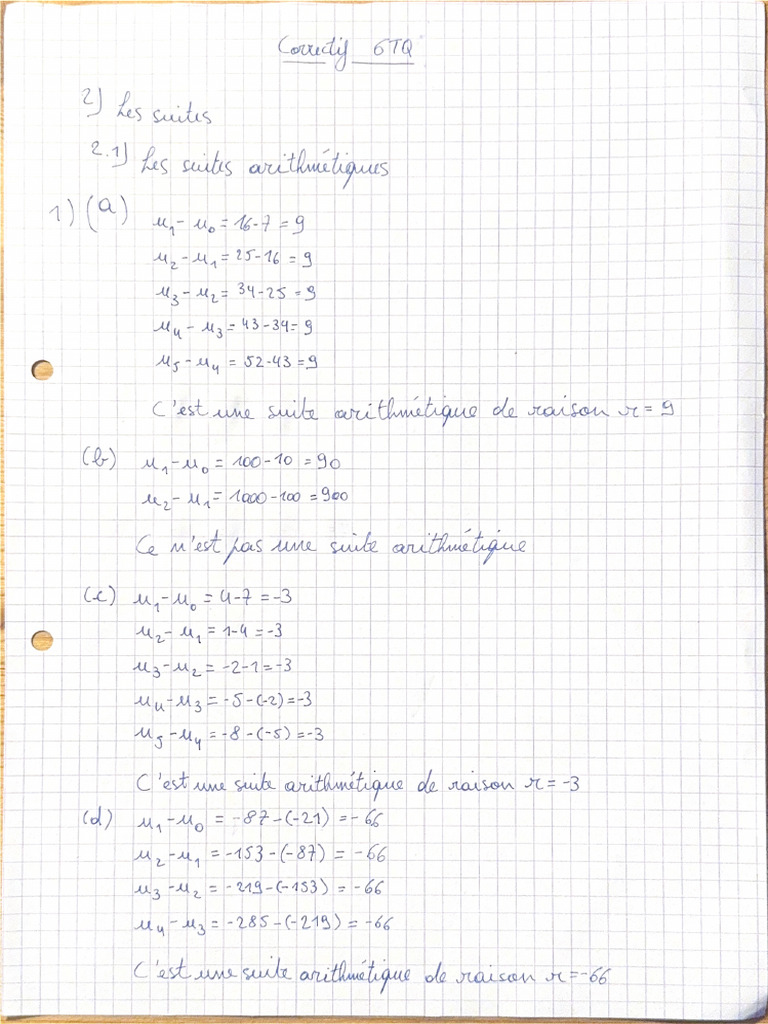 Correctif 6TQ
2) Les suites
2.1) Les suites arithmétiques
1) (a) u₁ - u₀ = 16-7 = 9
u₂ - u₁ = 25-16 = 9
u₃ - u₂ = 34-25 = 9
u₄ - u₃ = 43-34 = 9
u₅ - u₄ = 52-43 = 9
C'est une suite arithmétique de raison r = 9
(b) u₁ - u₀ = 100-10 = 90
u₂ - u₁ = 1000-100 = 900
Ce n'est pas une suite arithmétique
(c) u₁ - u₀ = 4-7 = -3
u₂ - u₁ = 1-4 = -3
u₃ - u₂ = -2-1 = -3
u₄ - u₃ = -5-(-2) = -3
u₅ - u₄ = -8-(-5) = -3
C'est une suite arithmétique de raison r = -3
(d) u₁ - u₀ = -87-(-21) = -66
u₂ - u₁ = -153-(-87) = -66
u₃ - u₂ = -219-(-153) = -66
u₄ - u₃ = -285-(-219) = -66
C'est une suite arithmétique de raison r = -66